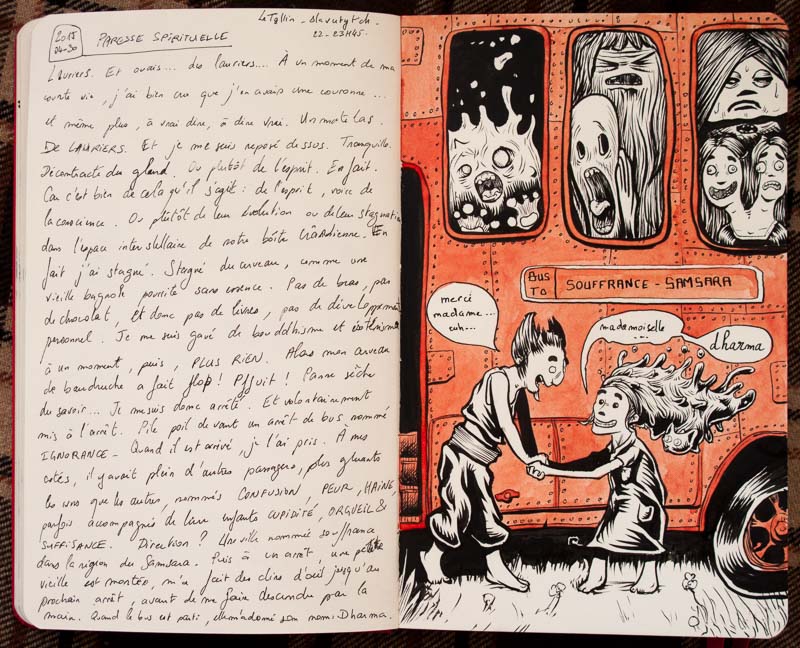 2015
04-30
PARESSE SPIRITUELLE
Le Tallin - Slavutytch.
22-23H45.
Lauriers. Et ouais... des lauriers... À un moment de ma
courte vie, j'ai bien cru que j'en avais une couronne...
et même plus, à vrai dire, à dire vrai. Un matelas.
DE LAURIERS. Et je me suis reposé dessus. Tranquille.
Décontracté du gland. Ou plutôt de l'esprit. En fait.
Car c'est bien de cela qu'il s'agit : de l'esprit, voire de
la conscience. Ou plutôt de leur évolution ou de leur stagnation
dans l'espace interstellaire de notre boîte crânienne. En
fait j'ai stagné. Stagné du cerveau, comme une
vieille bagnole pourrite sans essence. Pas de bras, pas
de chocolat, et donc pas de livres, pas de développement
personnel. Je me suis gavé de bouddhisme et
à un moment, puis, PLUS RIEN. Alors mon cerveau
de baudruche a fait flop! Pffuit! Panne sèche
du savoir... Je me suis donc arrêté. Et volontairement
mis à l'arrêt. Pile poil devant un arrêt de bus nommé
IGNORANCE - Quand il est arrivé, je l'ai pris. À mes
cotés, il y avait plein d'autres passagers, plus gluants
les uns que les autres, nommés CONFUSION, PEUR, HAINE,
parfois accompagnés de leurs enfants CUPIDITÉ, ORGUEIL &
SUFFISANCE. Direction? Une ville nommée souffrance
dans la région du Samsara. Puis à un arrêt, une petite
vieille est montée, m'a fait des clins d'oeil jusqu'au
prochain arrêt, avant de me faire descendre par la
main. Quand le bus est parti, elle m'a donné son nom: Dharma.
BUS
TO
SOUFFRANCE - SAMSARA
merci
madame...
euh...
mademoiselle
...
dharma